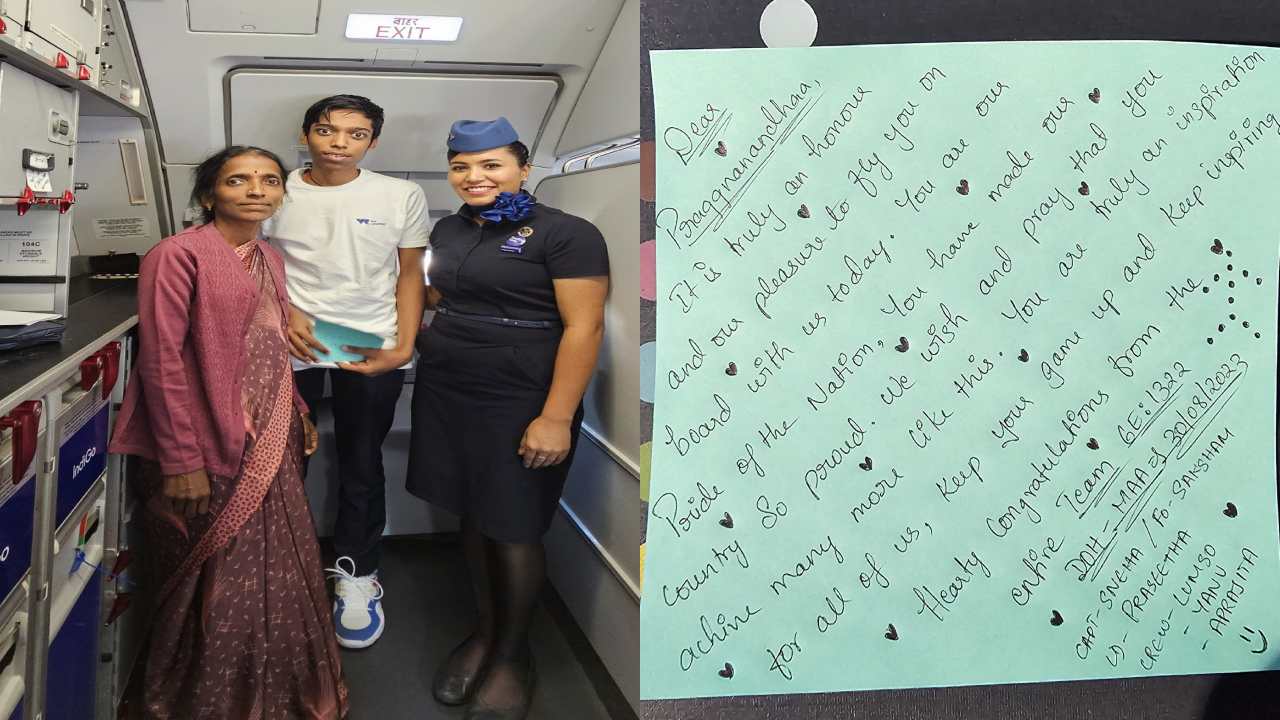 बाहर
EXIT
104C
IndiGo
Dear
Praggnanandhaa,
It is truly an honour
and our pleasure to fly you on
board with us today. You are our
Pride of the Nation, You have made our
Country so proud. We wish and pray that you
achive many more like this. You are truly an inspiration
for all of us, Keep your game up and Keep inspiring
Hearty Congratulations from the
entire Team 6E:1322
DOH - MAA => 30/08/2023
CAPT- SNEHA / FO- SAKSHAM
LD- PRASEETHA
CREW- LUNISO
- YANJU
- APRAJITA